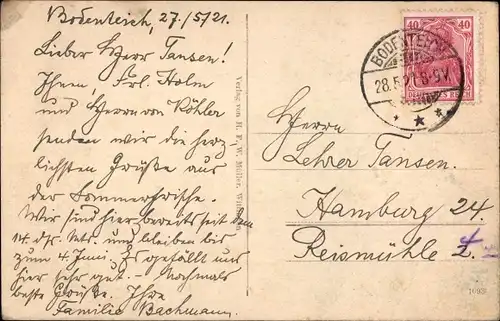 Bodenteich, 27./5/21.
Lieber Herr Tansen!
Ihnen, Frl. Holm
und Herrn von Köhler
senden wir die herz-
lichsten Grüße aus
der Sommerfrische.
Wir sind hier bereits seit dem
14. ds. Mts. und bleiben bis
zum 4. Juni. Es gefällt uns
hier sehr gut. – Nochmals
beste Grüße. Ihre
Familie Bachmann.
Verlag von H. F. W. Müller,
40 40
DEUTSCHES REICH
BODENTEICH
28.5.21. 8-9V.
Herrn
Lehrer Tansen.
Hamburg 24.
Reismühle 2.